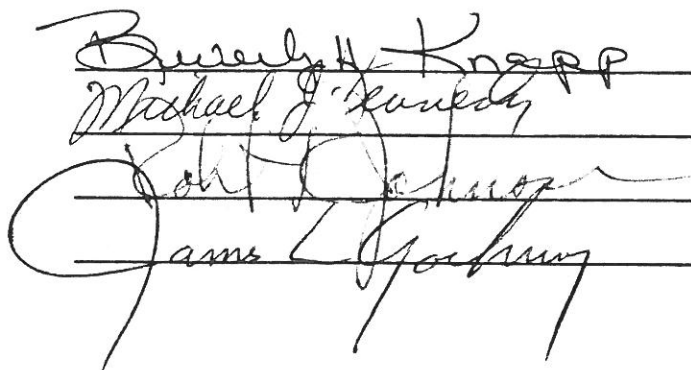 Beverly H. Knapp
Michael J. Kennedy
Robt Johnson
James L.